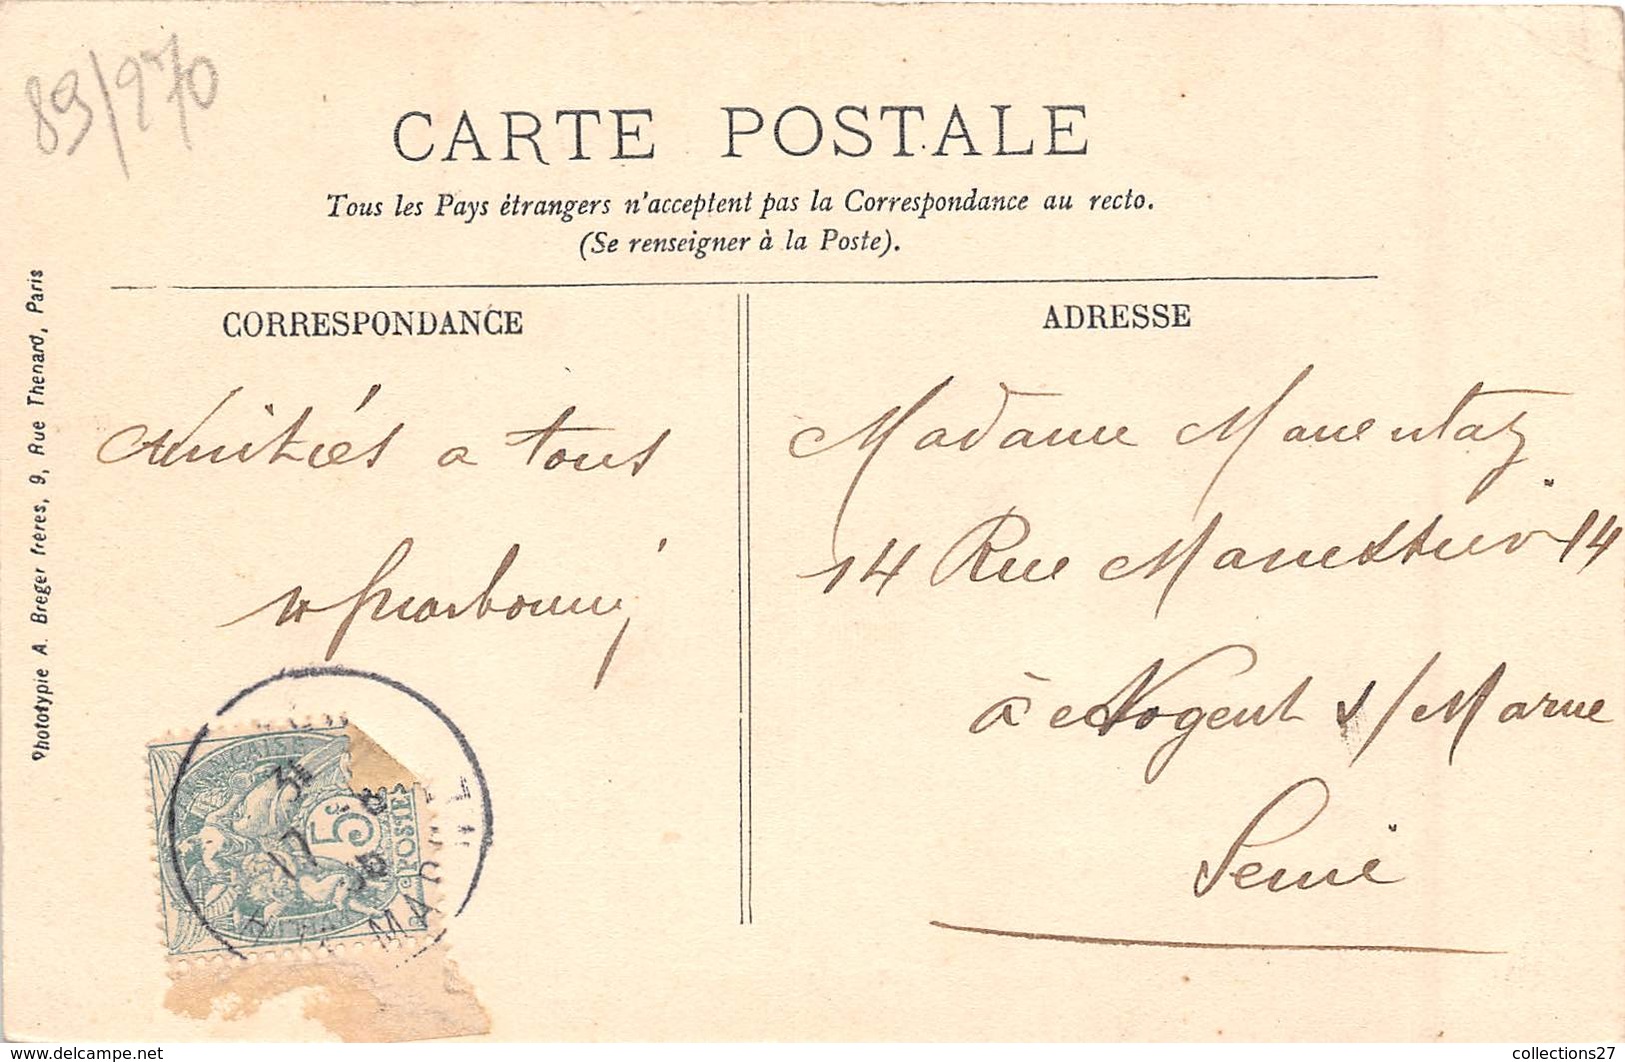 89/270
CARTE POSTALE
Tous les Pays étrangers n'acceptent pas la Correspondance au recto.
(Se renseigner à la Poste).
CORRESPONDANCE
Amitiés a tous
ADRESSE
Madame
14 Rue 14
à Nogent s/Marne
Seine
Phototypie A. Breger frères, 9, Rue Thenard, Paris
5c
POSTES
www.delcampe.net
collections27